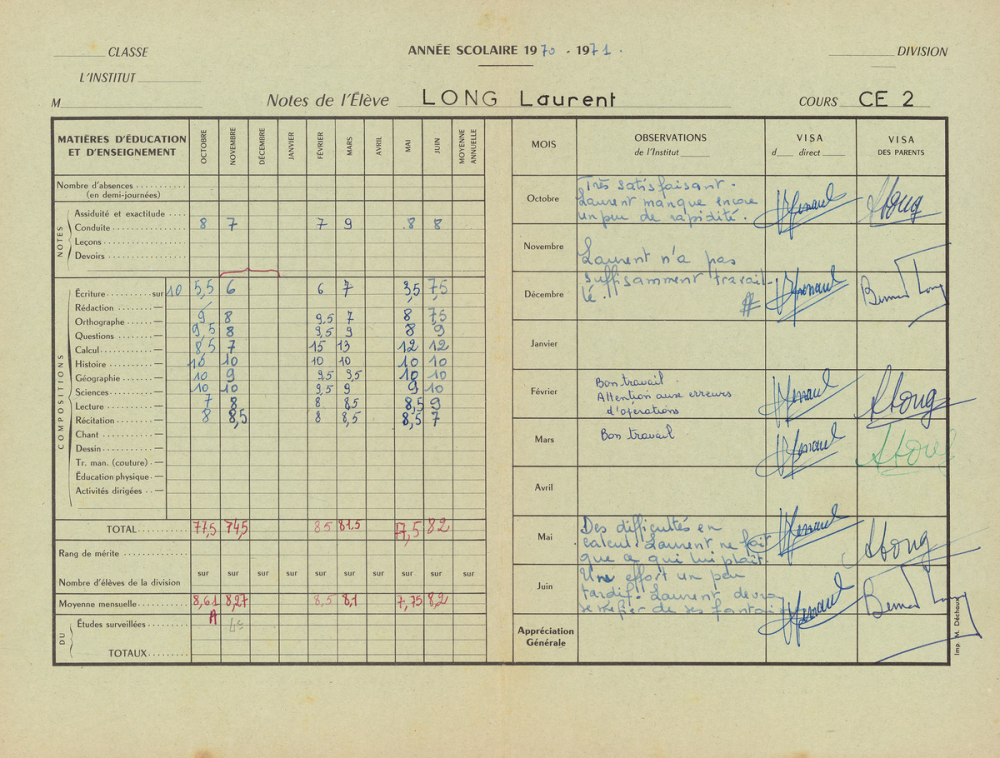 CLASSE
ANNÉE SCOLAIRE 1970 - 1971.
DIVISION
L'INSTITUT
M
Notes de l'Élève LONG Laurent
COURS CE 2
MATIÈRES D'ÉDUCATION
ET D'ENSEIGNEMENT
OCTOBRE NOVEMBRE DÉCEMBRE JANVIER FÉVRIER MARS AVRIL MAI JUIN MOYENNE ANNUELLE
Nombre d'absences
(en demi-journées)
NOTES
Assiduité et exactitude
Conduite 8 7 7 9 8 8
Leçons
Devoirs
COMPOSITIONS
Écriture sur 10 5,5 6 6 7 3,5 7,5
Rédaction —
Orthographe — 9 8 9,5 7 8 7,5
Questions — 9,5 8 9,5 9 8 9
Calcul — 8,5 7 15 13 12 12
Histoire — 10 10 10 10 10 10
Géographie — 10 9 9,5 9,5 10 10
Sciences — 10 10 9,5 9 9 10
Lecture — 7 8 8 8,5 8,5 9
Récitation — 8 8,5 8 8,5 8,5 7
Chant —
Dessin —
Tr. man. (couture) —
Éducation physique —
Activités dirigées —
TOTAL 77,5 74,5 85 81,5 77,5 82
Rang de mérite
sur sur sur sur sur sur sur sur sur sur
Nombre d'élèves de la division
Moyenne mensuelle 8,61 8,27 8,5 8,1 7,75 8,2
DU
Études surveillées A
TOTAUX
MOIS
OBSERVATIONS
de l'Institut
VISA
d direct
VISA
DES PARENTS
Octobre
Très satisfaisant.
Laurent manque encore
un peu de rapidité.
Novembre
Laurent n'a pas
Décembre
suffisamment travail-
lé.
Bernard Long
Janvier
Février
Bon travail.
Attention aux erreurs
d'opérations
Mars
Bon travail
Avril
Mai
Des difficultés en
calcul. Laurent ne fait
que ce qui lui plaît.
Juin
Un effort un peu
tardif. Laurent devra
se méfier de ses fantai
Bernard Long
Appréciation
Générale
Imp. M. Déchaux